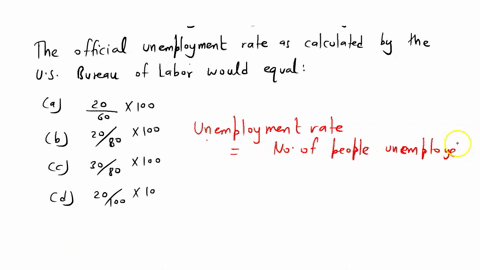 The official unemployment rate as calculated by the
U.S. Bureau of Labor would equal:
(a) 20/60 × 100
(b) 20/80 × 100
(c) 30/80 × 100
(d) 20/100 × 10
Unemployment rate
= No. of people unemploye